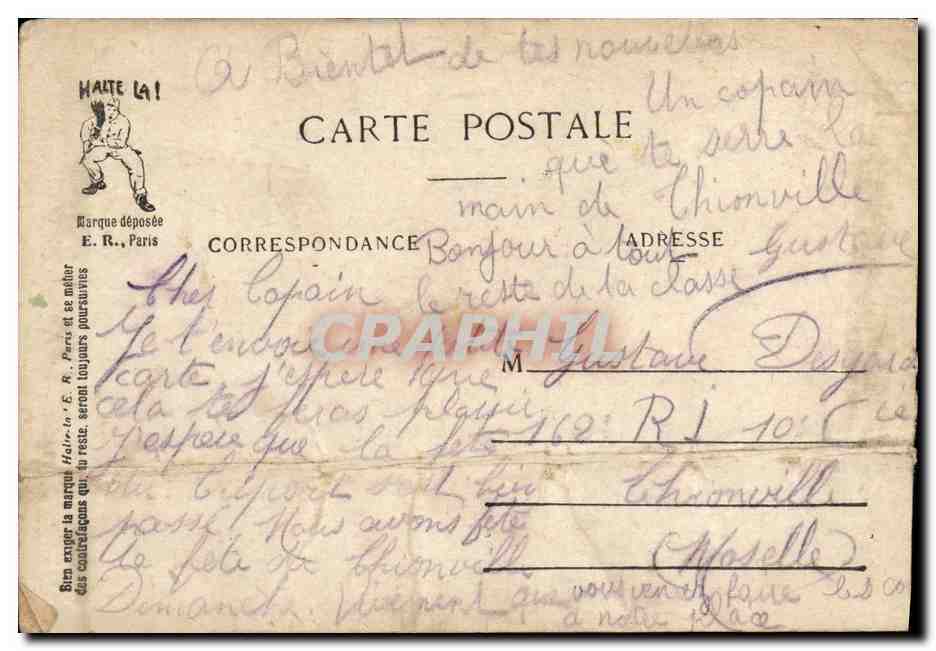 A Bientot de tes nouvelles
Un copain
que te serre la
main de Thionville
HALTE LA!
CARTE POSTALE
Marque déposée
E. R., Paris
CORRESPONDANCE
ADRESSE
Bonjour à tout
le reste de la classe
Gustave
Cher Copain
Je t'envoie une
carte j'espère que
cela te feras plaisir
J'espère que la fête
du Tréport s'est bien
passé. Nous avons fête
la fête de Thionvill
Dimanche. Vivement que vous venez faire les co
à notre place
M Gustave
162e R I 10e Cie
Thionville
(Moselle)
CRAPHIL
Bien exiger la marque Halte-là ! E. R., Paris et se méfier
des contrefaçons qui, du reste, seront toujours poursuivies